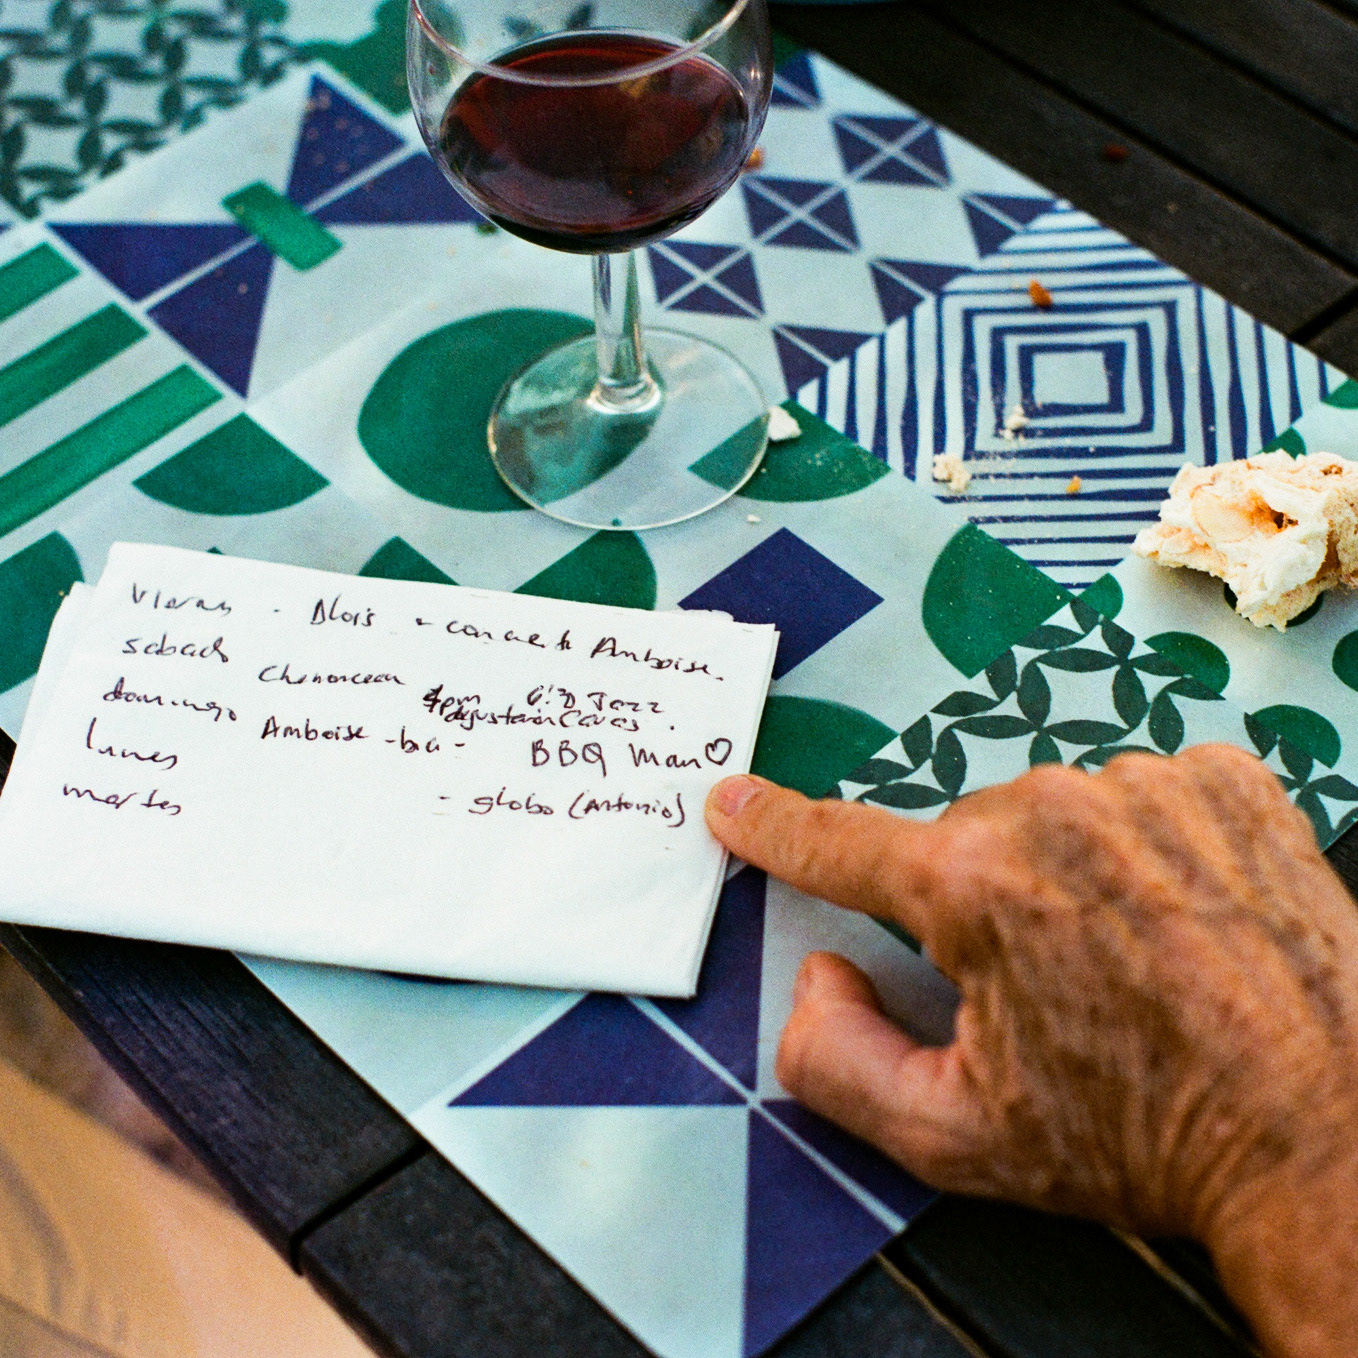 viernes - Blois - concierto Amboise.
sabado Chenonceau 4pm 6:30 Jazz
degustación Cavas.
domingo Amboise - BBQ Man♡
lunes - globo (Antonio)
martes